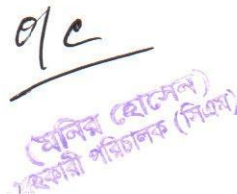 o/c
(মনির হোসেন)
সহকারী পরিচালক (সিএম)